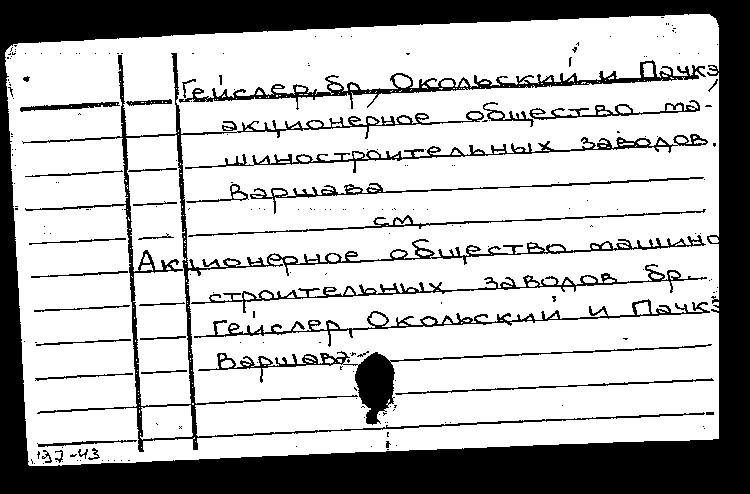 Гейслер, бр, Окольский и Пачкэ,
акционерное общество ма-
шиностроительных заводов.
Варшава
см.
Акционерное общество машино
строительных заводов бр.
Гейслер, Окольский и Пачкэ
Варшава
197-43